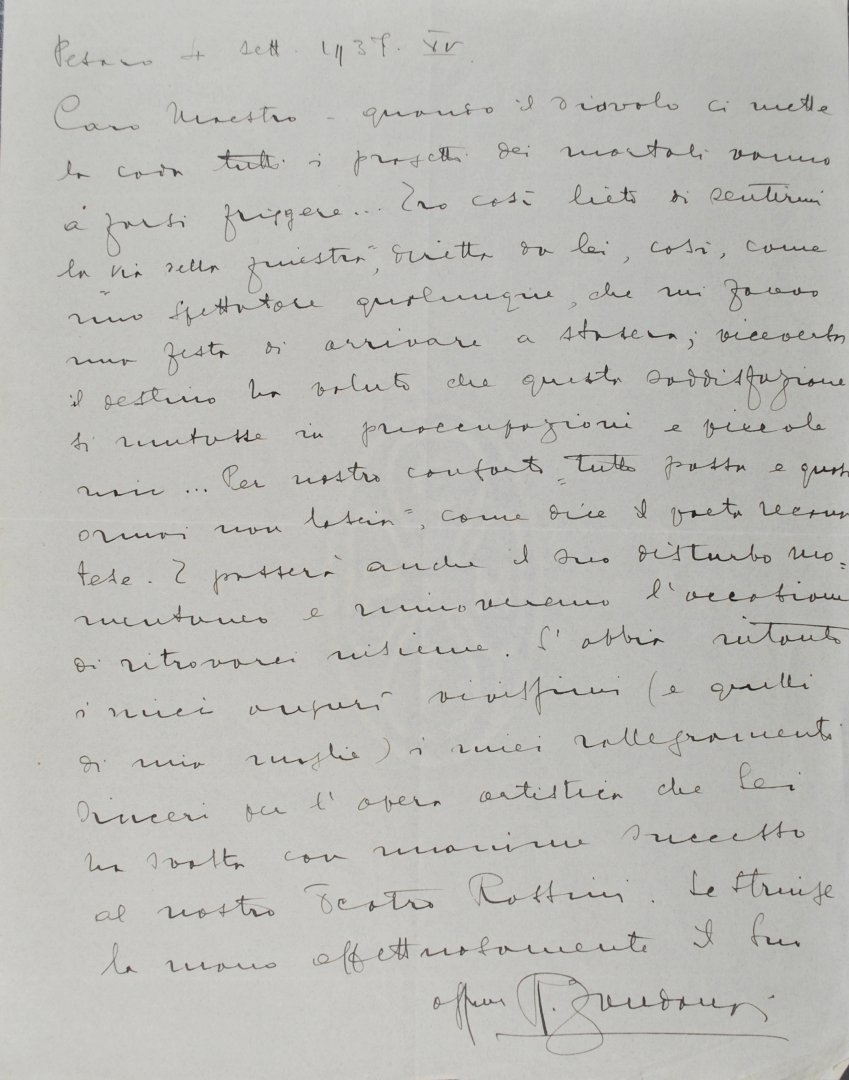 Pesaro 4 sett. 1937. XV
Caro Maestro - quando il diavolo ci mette
la coda tutti i progetti dei mortali vanno
a farsi friggere... Ero così lieto di sentirmi
la "Via della finestra", diretta da lei, così, come
uno spettatore qualunque, che mi facevo
una festa di arrivare a stasera; viceversa
il destino ha voluto che questa soddisfazione
si mutasse in preoccupazioni e piccole
noie... Per nostro conforto "tutto passa e quasi
ormai non lascia", come dice il poeta recana
tese. E passerà anche il suo disturbo mo=
mentaneo e rinnoveremo l'occasione
di ritrovarci insieme. S'abbia intanto
i miei auguri vivissimi (e quelli
di mia moglie) i miei rallegramenti
sinceri per l'opera artistica che Lei
ha svolta con unanime successo
al nostro Teatro Rossini. Le stringe
la mano affettuosamente il Suo
affmo R. Zandonai